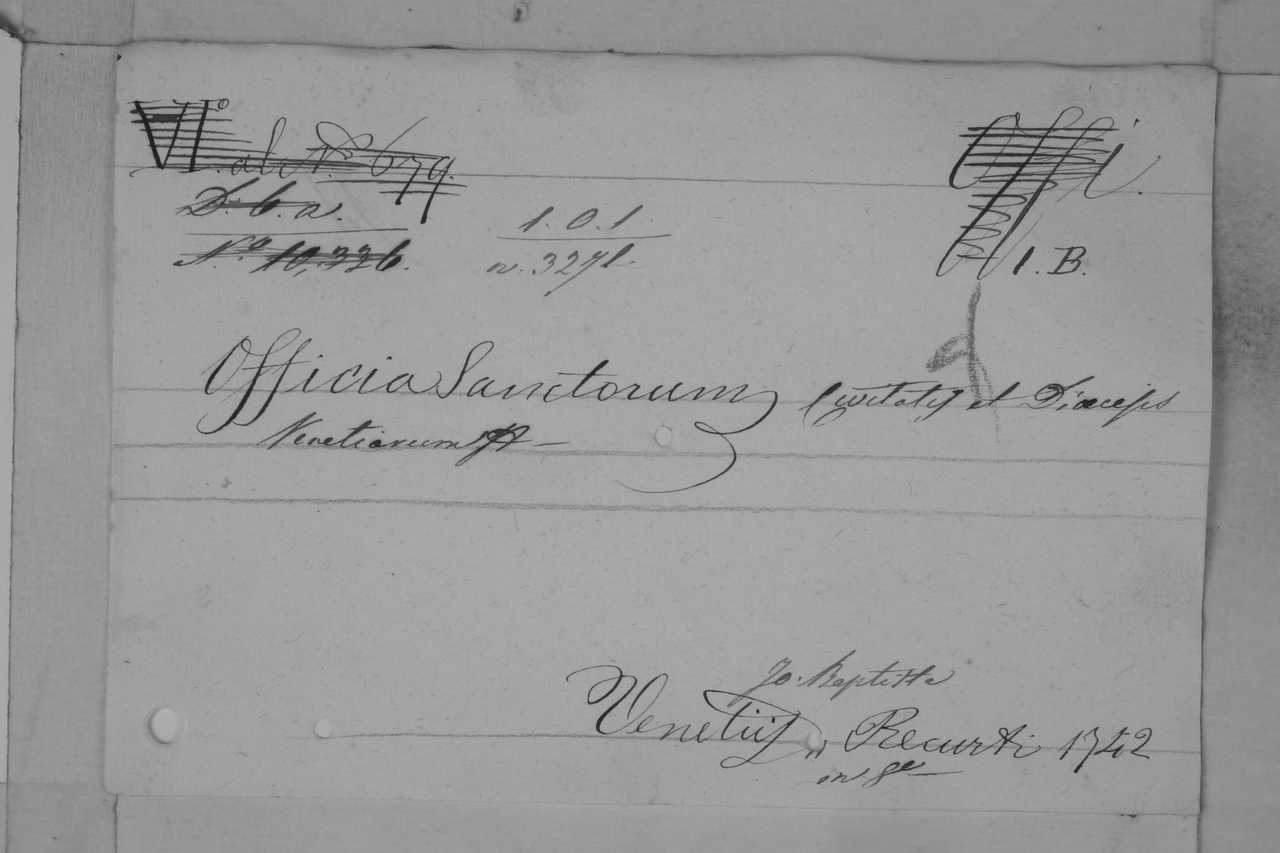 VI.° al. N.° 679.
Offi.
D. b. a.
N.° 10,226.
1. O. 1.
n. 3271.
1. B.
Officia Sanctorum Civitatis et Diœcesis
Venetiarum
Jo. Baptista
Venetiis, Recurti 1742
in 8º